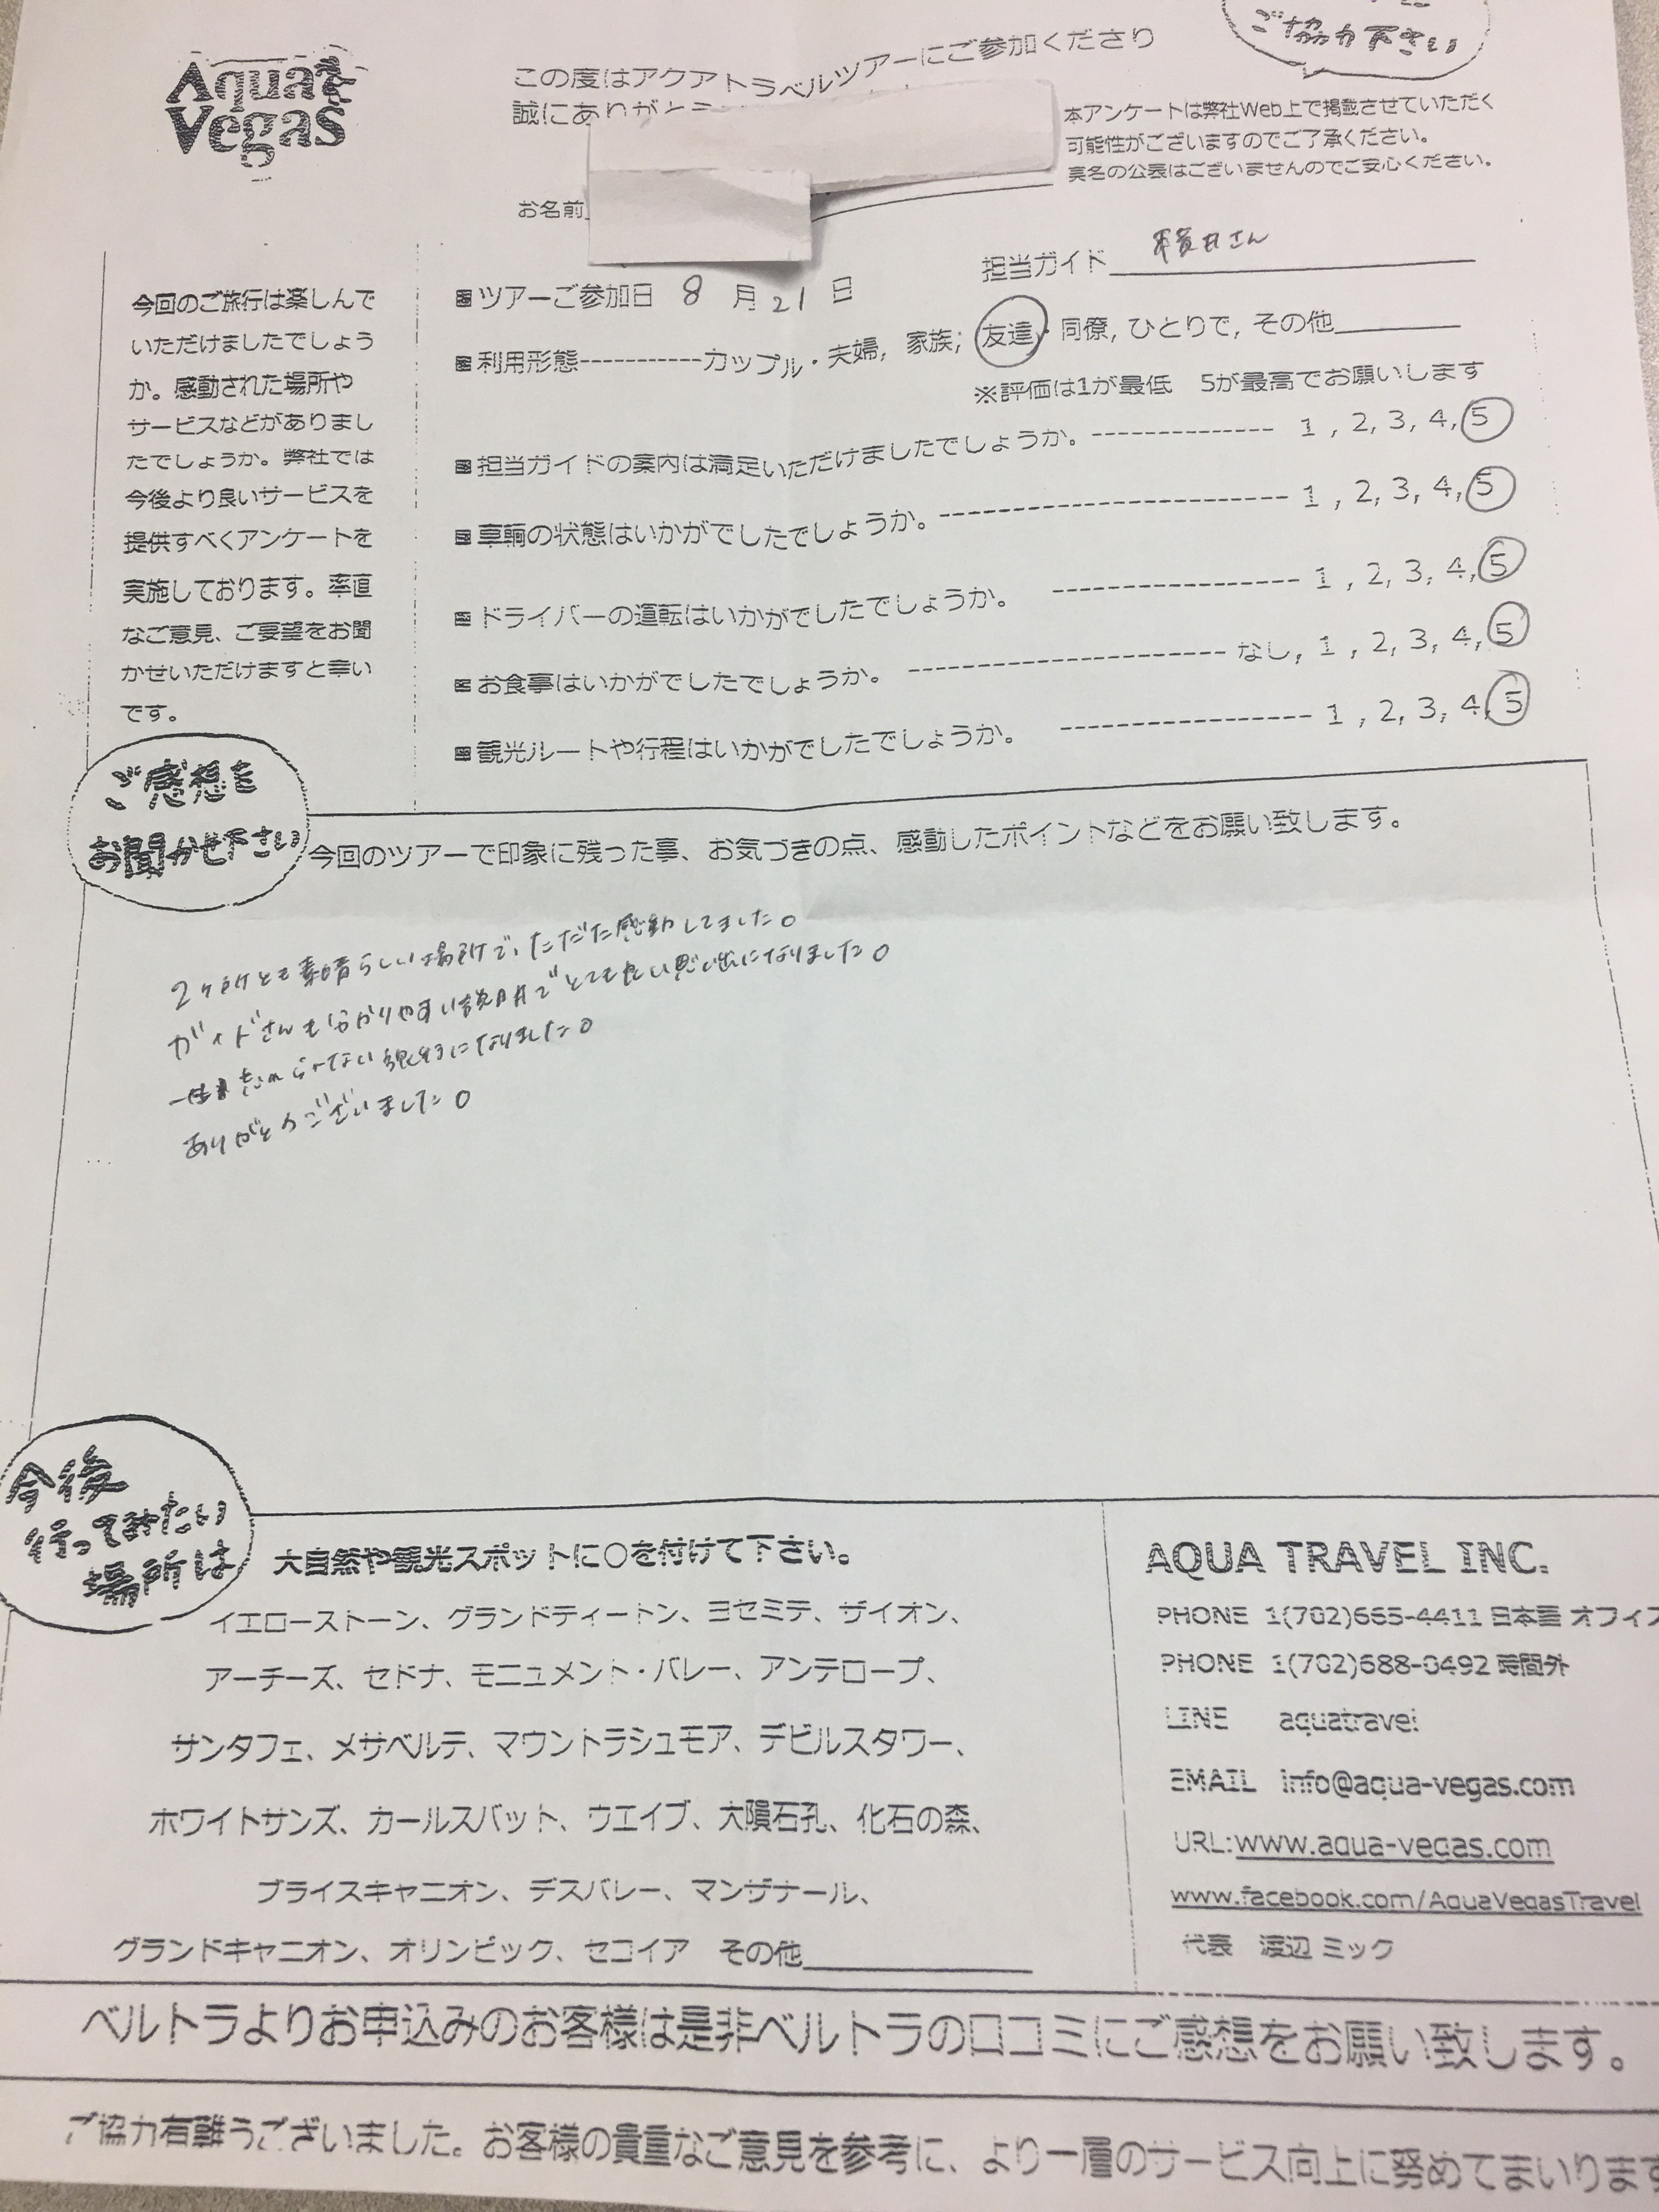 Aqua Vegas
ご協力下さい
この度はアクアトラベルツアーにご参加くださり
誠にありがとう
本アンケートは弊社Web上で掲載させていただく
可能性がございますのでご了承ください。
実名の公表はございませんのでご安心ください。
お名前
担当ガイド さん
今回のご旅行は楽しんで
いただけましたでしょう
か。感動された場所や
サービスなどがありまし
たでしょうか。弊社では
今後より良いサービスを
提供すべくアンケートを
実施しております。率直
なご意見、ご要望をお聞
かせいただけますと幸い
です。
■ツアーご参加日 8 月 21 日
■利用形態-----------カップル・夫婦, 家族; 友達・同僚, ひとりで, その他
※評価は1が最低 5が最高でお願いします
■担当ガイドの案内は満足いただけましたでしょうか。-------------- 1 , 2, 3, 4, 5
■車輌の状態はいかがでしたでしょうか。--------------------------- 1 , 2, 3, 4, 5
■ドライバーの運転はいかがでしたでしょうか。 ------------------- 1 , 2, 3, 4, 5
■お食事はいかがでしたでしょうか。 ------------------------ なし, 1 , 2, 3, 4, 5
■観光ルートや行程はいかがでしたでしょうか。 ------------------- 1 , 2, 3, 4, 5
ご感想を
お聞かせ下さい
今回のツアーで印象に残った事、お気づきの点、感動したポイントなどをお願い致します。
2ヶ所とも素晴らしい場所で、ただただ感動してました。
ガイドさんも分かりやすい説明でとても良い思い出になりました。
一生忘れられない になりました。
ありがとうございました。
今後
行ってみたい
場所は
大自然や観光スポットに○を付けて下さい。
イエローストーン、グランドティートン、ヨセミテ、ザイオン、
アーチーズ、セドナ、モニュメント・バレー、アンテロープ、
サンタフェ、メサベルテ、マウントラシュモア、デビルスタワー、
ホワイトサンズ、カールスバット、ウエイブ、大隕石孔、化石の森、
ブライスキャニオン、デスバレー、マンザナール、
グランドキャニオン、オリンピック、セコイア その他
AQUA TRAVEL INC.
PHONE 1(702)665-4411 日本語 オフィス
PHONE 1(702)688-0492 時間外
LINE aquatravel
EMAIL info@aqua-vegas.com
URL:www.aqua-vegas.com
www.facebook.com/AquaVegasTravel
代表 渡辺 ミック
ベルトラよりお申込みのお客様は是非ベルトラの口コミにご感想をお願い致します。
ご協力有難うございました。お客様の貴重なご意見を参考に、より一層のサービス向上に努めてまいります